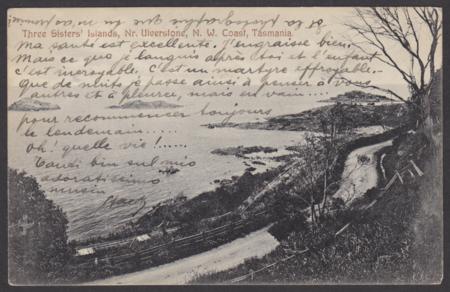 Three Sisters' Islands, Nr. Ulverstone, N. W. Coast, Tasmania.
ma santé est excellente. J'engraisse bien.
Mais ce que je languis après toi et l'enfant
c'est incroyable. C'est un martyre effroyable.
que de nuits je passe ainsi à penser à vous
autres et à pleurer, mais en vain.....
pour recommencer toujours
le lendemain.....
Oh! quelle vie!.....
sul mio
adoratissimo